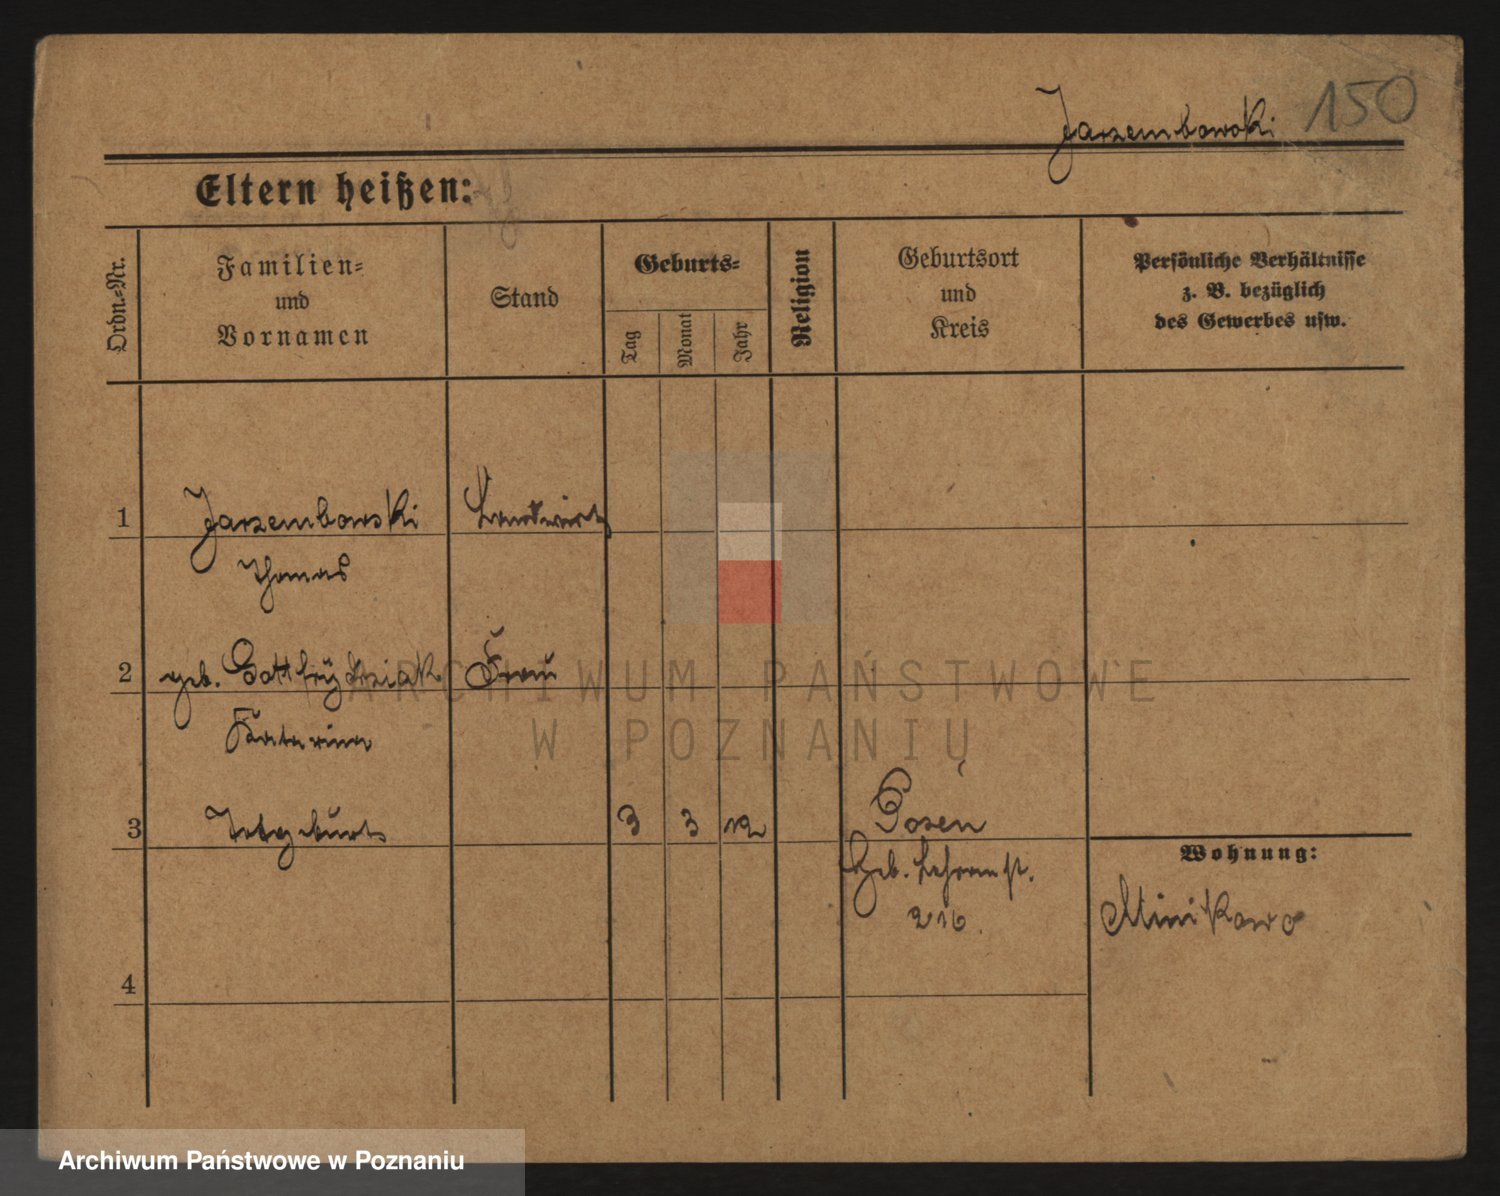 Jarzembowski 150
Eltern heißen:
Ordn.-Nr.
Familien-
und
Vornamen
Stand
Geburts-
Tag
Monat
Jahr
Religion
Geburtsort
und
Kreis
Persönliche Verhältnisse
z. B. bezüglich
des Gewerbes usw.
1 Jarzembowski Landwirt
Thomas
2 geb. Frau
Katarina
3 Totgeburt 3 3 12 Posen
Geb. Lehranst.
216.
Wohnung:
Minikowo
4
ARCHIWUM PAŃSTWOWE
W POZNANIU
Archiwum Państwowe w Poznaniu